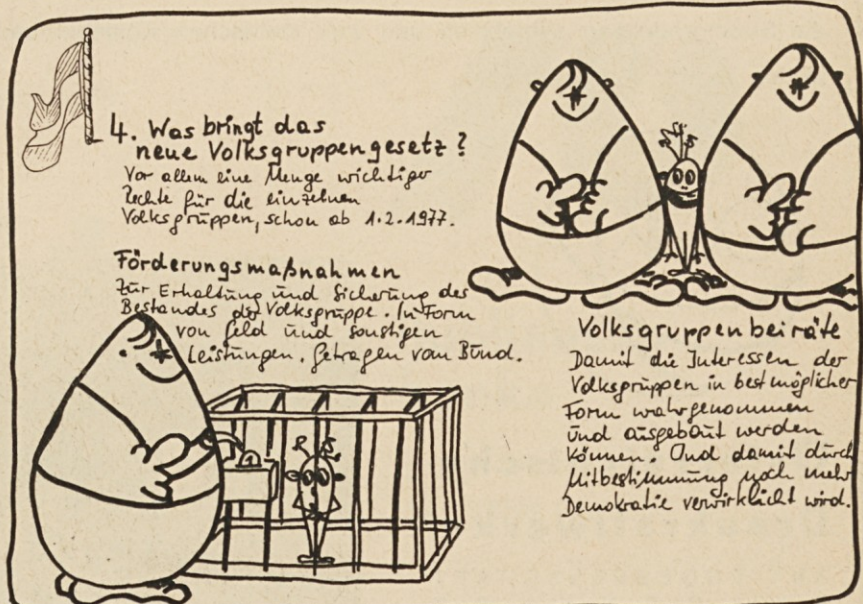 4. Was bringt das
neue Volksgruppengesetz?
Vor allem eine Menge wichtiger
Rechte für die einzelnen
Volksgruppen, schon ab 1.2.1977.
Förderungsmaßnahmen
Zur Erhaltung und Sicherung des
Bestandes der Volksgruppe. In Form
von Geld und sonstigen
Leistungen. Getragen vom Bund.
Volksgruppenbeiräte
Damit die Interessen der
Volksgruppen in bestmöglicher
Form wahrgenommen
und ausgebaut werden
können. Und damit durch
Mitbestimmung noch mehr
Demokratie verwirklicht wird.